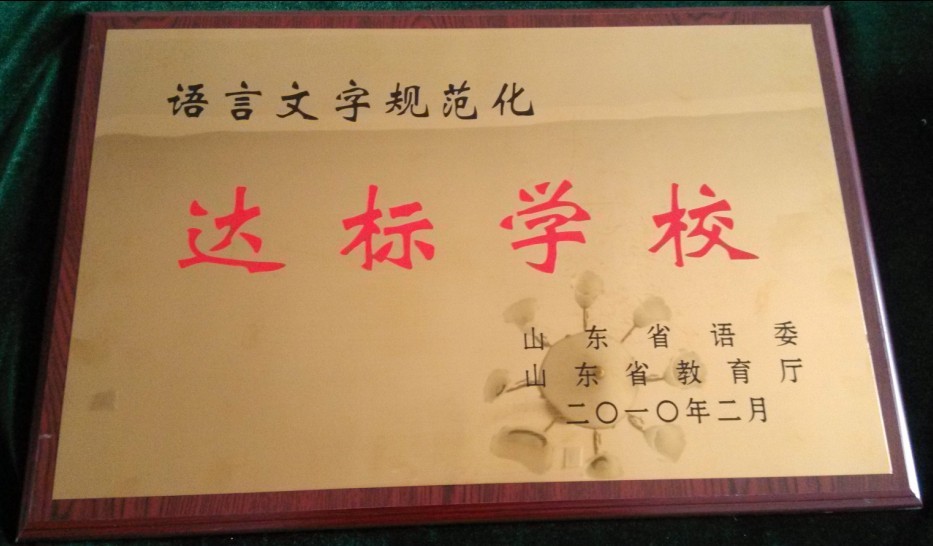 语言文字规范化
达标学校
山东省语委
山东省教育厅
二〇一〇年二月